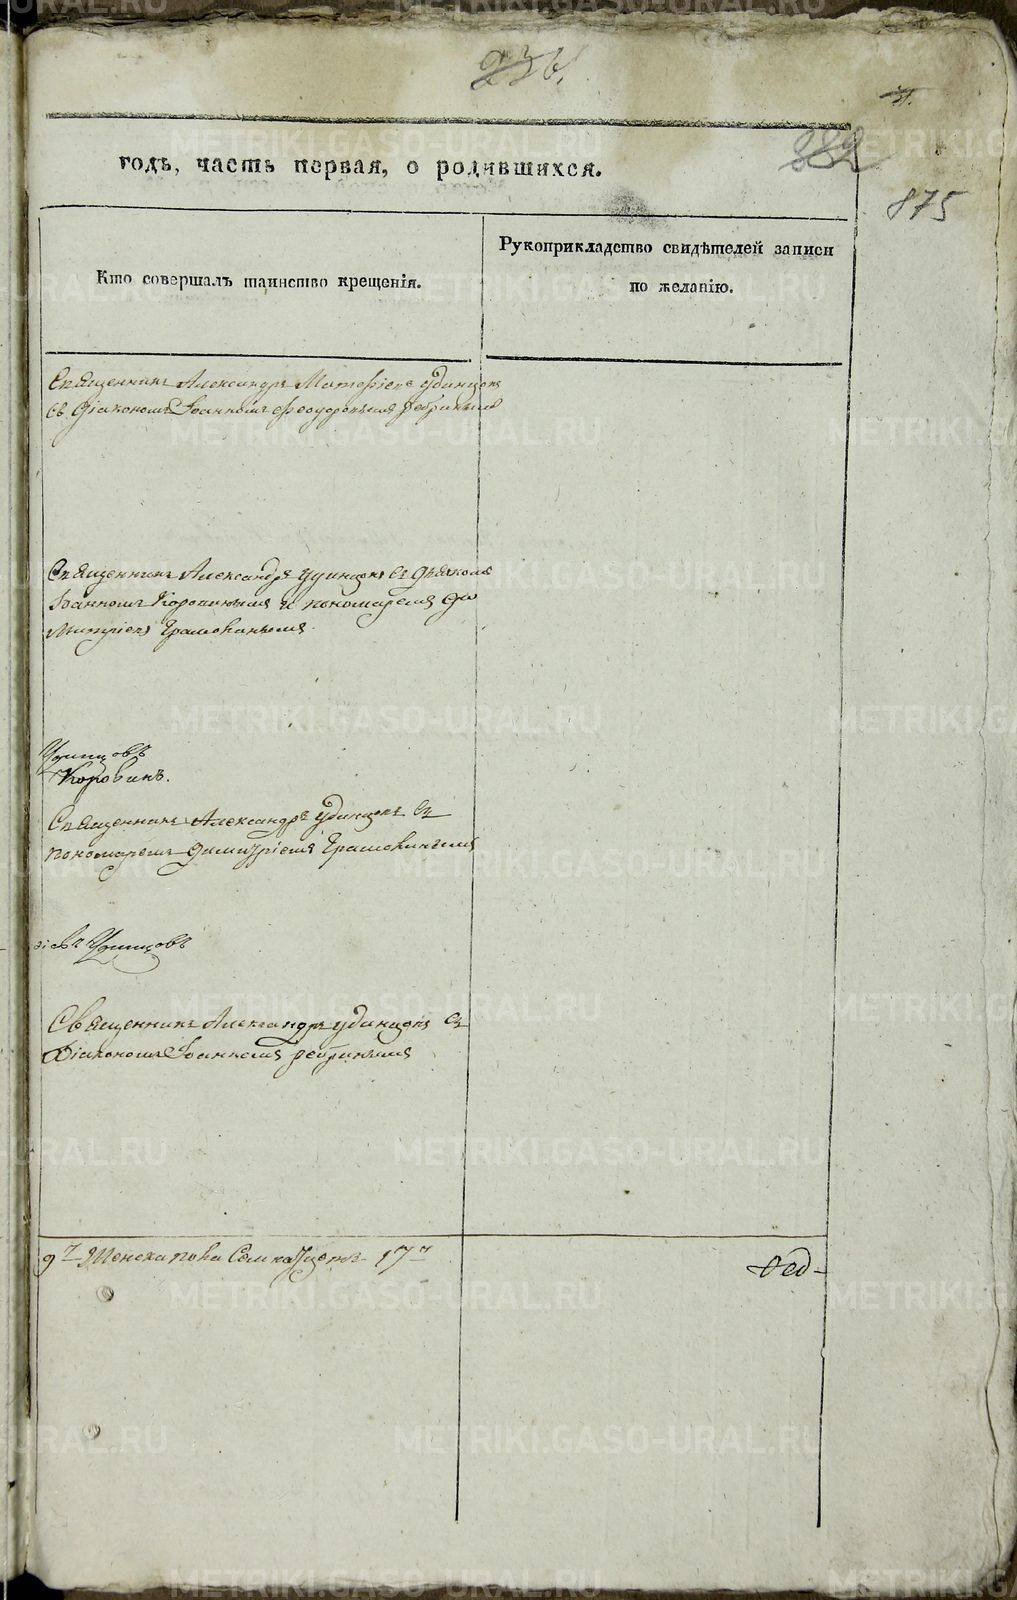 236.
31.
382
годъ, часть первая, о родившихся.
875
Кто совершалъ таинство крещенія.
Рукоприкладство свидѣтелей записи
по желанію.
Священникъ Александръ Матѳіевъ Удинцовъ
съ Діакономъ Іоанномъ Феодоровымъ Ребринымъ
Священникъ Александръ Удинцовъ съ Діаконом
Іоанномъ Коровинымъ и пономаремъ Ди
митріемъ Грамовинымъ.
Удинцовъ
Коровинъ.
Священникъ Александръ Удинцовъ съ
пономаремъ Димитріемъ Грамовинымъ
Удинцовъ
Священникъ Александръ Удинцовъ съ
Діакономъ Іоанномъ Ребринымъ
9 Женска пола Семнатцеть 17
METRIKI.GASO-URAL.RU